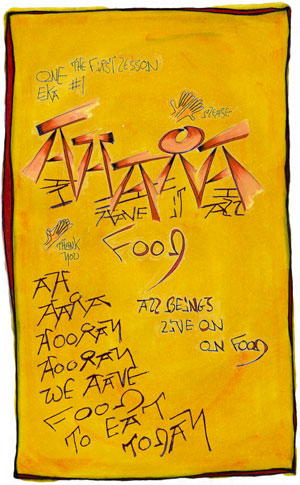 THE FIRST LESSON
ONE
EKA #1
PLEASE
HAVE IT ALL
FOOD
THANK
YOU
AH
HOORAY
HOORAY
WE HAVE
FOOD
TO EAT
TODAY
ALL BEINGS
LIVE ON
ON FOOD